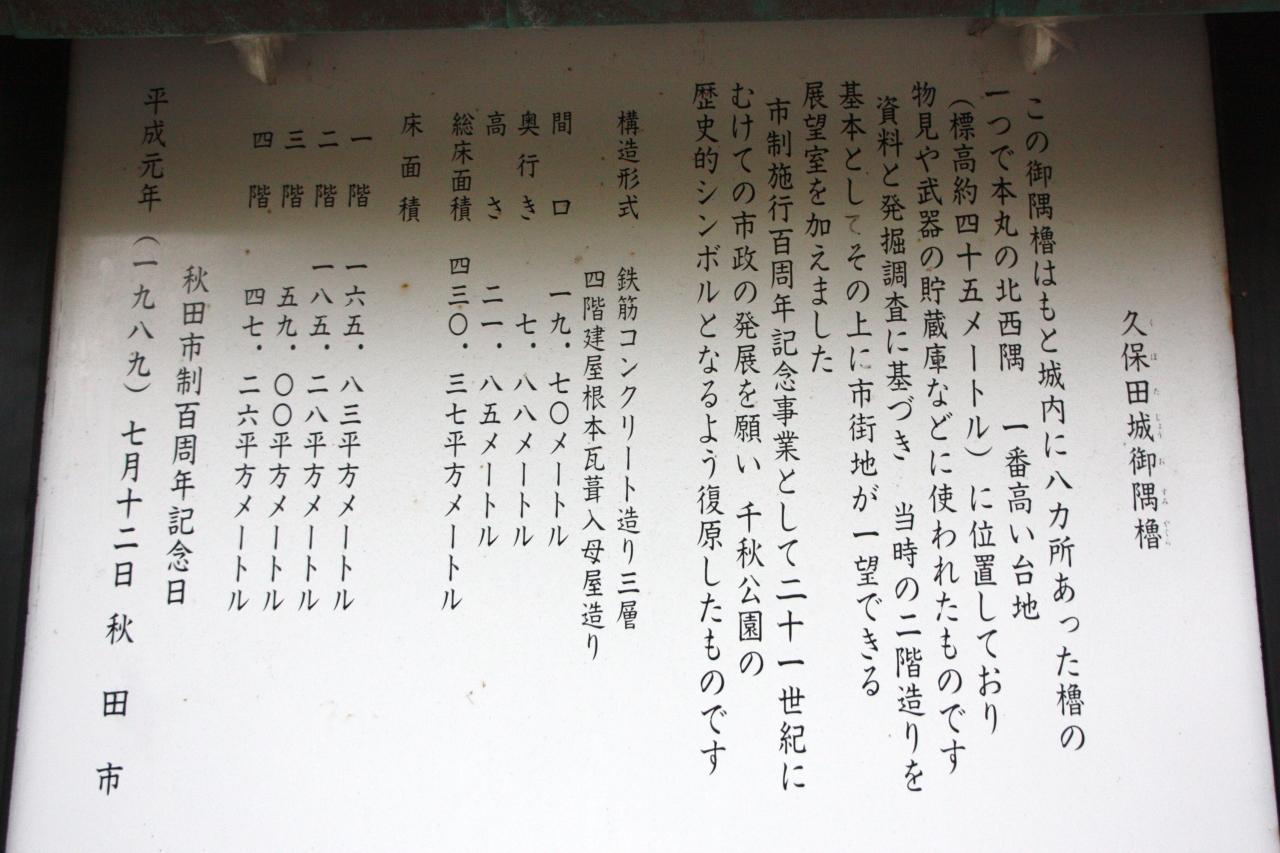 久保田城御隅櫓
くぼたじょうおすみやぐら
この御隅櫓はもと城内に八カ所あった櫓の
一つで本丸の北西隅　一番高い台地
（標高約四十五メートル）に位置しており
物見や武器の貯蔵庫などに使われたものです
資料と発掘調査に基づき　当時の二階造りを
基本としてその上に市街地が一望できる
展望室を加えました
市制施行百周年記念事業として二十一世紀に
むけての市政の発展を願い　千秋公園の
歴史的シンボルとなるよう復原したものです
構造形式　鉄筋コンクリート造り三層
四階建屋根本瓦葺入母屋造り
間口　一九．七〇メートル
奥行き　七．八八メートル
高さ　二一．八五メートル
総床面積　四三〇．三七平方メートル
床面積
一階　一六五．八三平方メートル
二階　一八五．二八平方メートル
三階　五九．〇〇平方メートル
四階　四七．二六平方メートル
秋田市制百周年記念日
平成元年（一九八九）七月十二日　秋田市